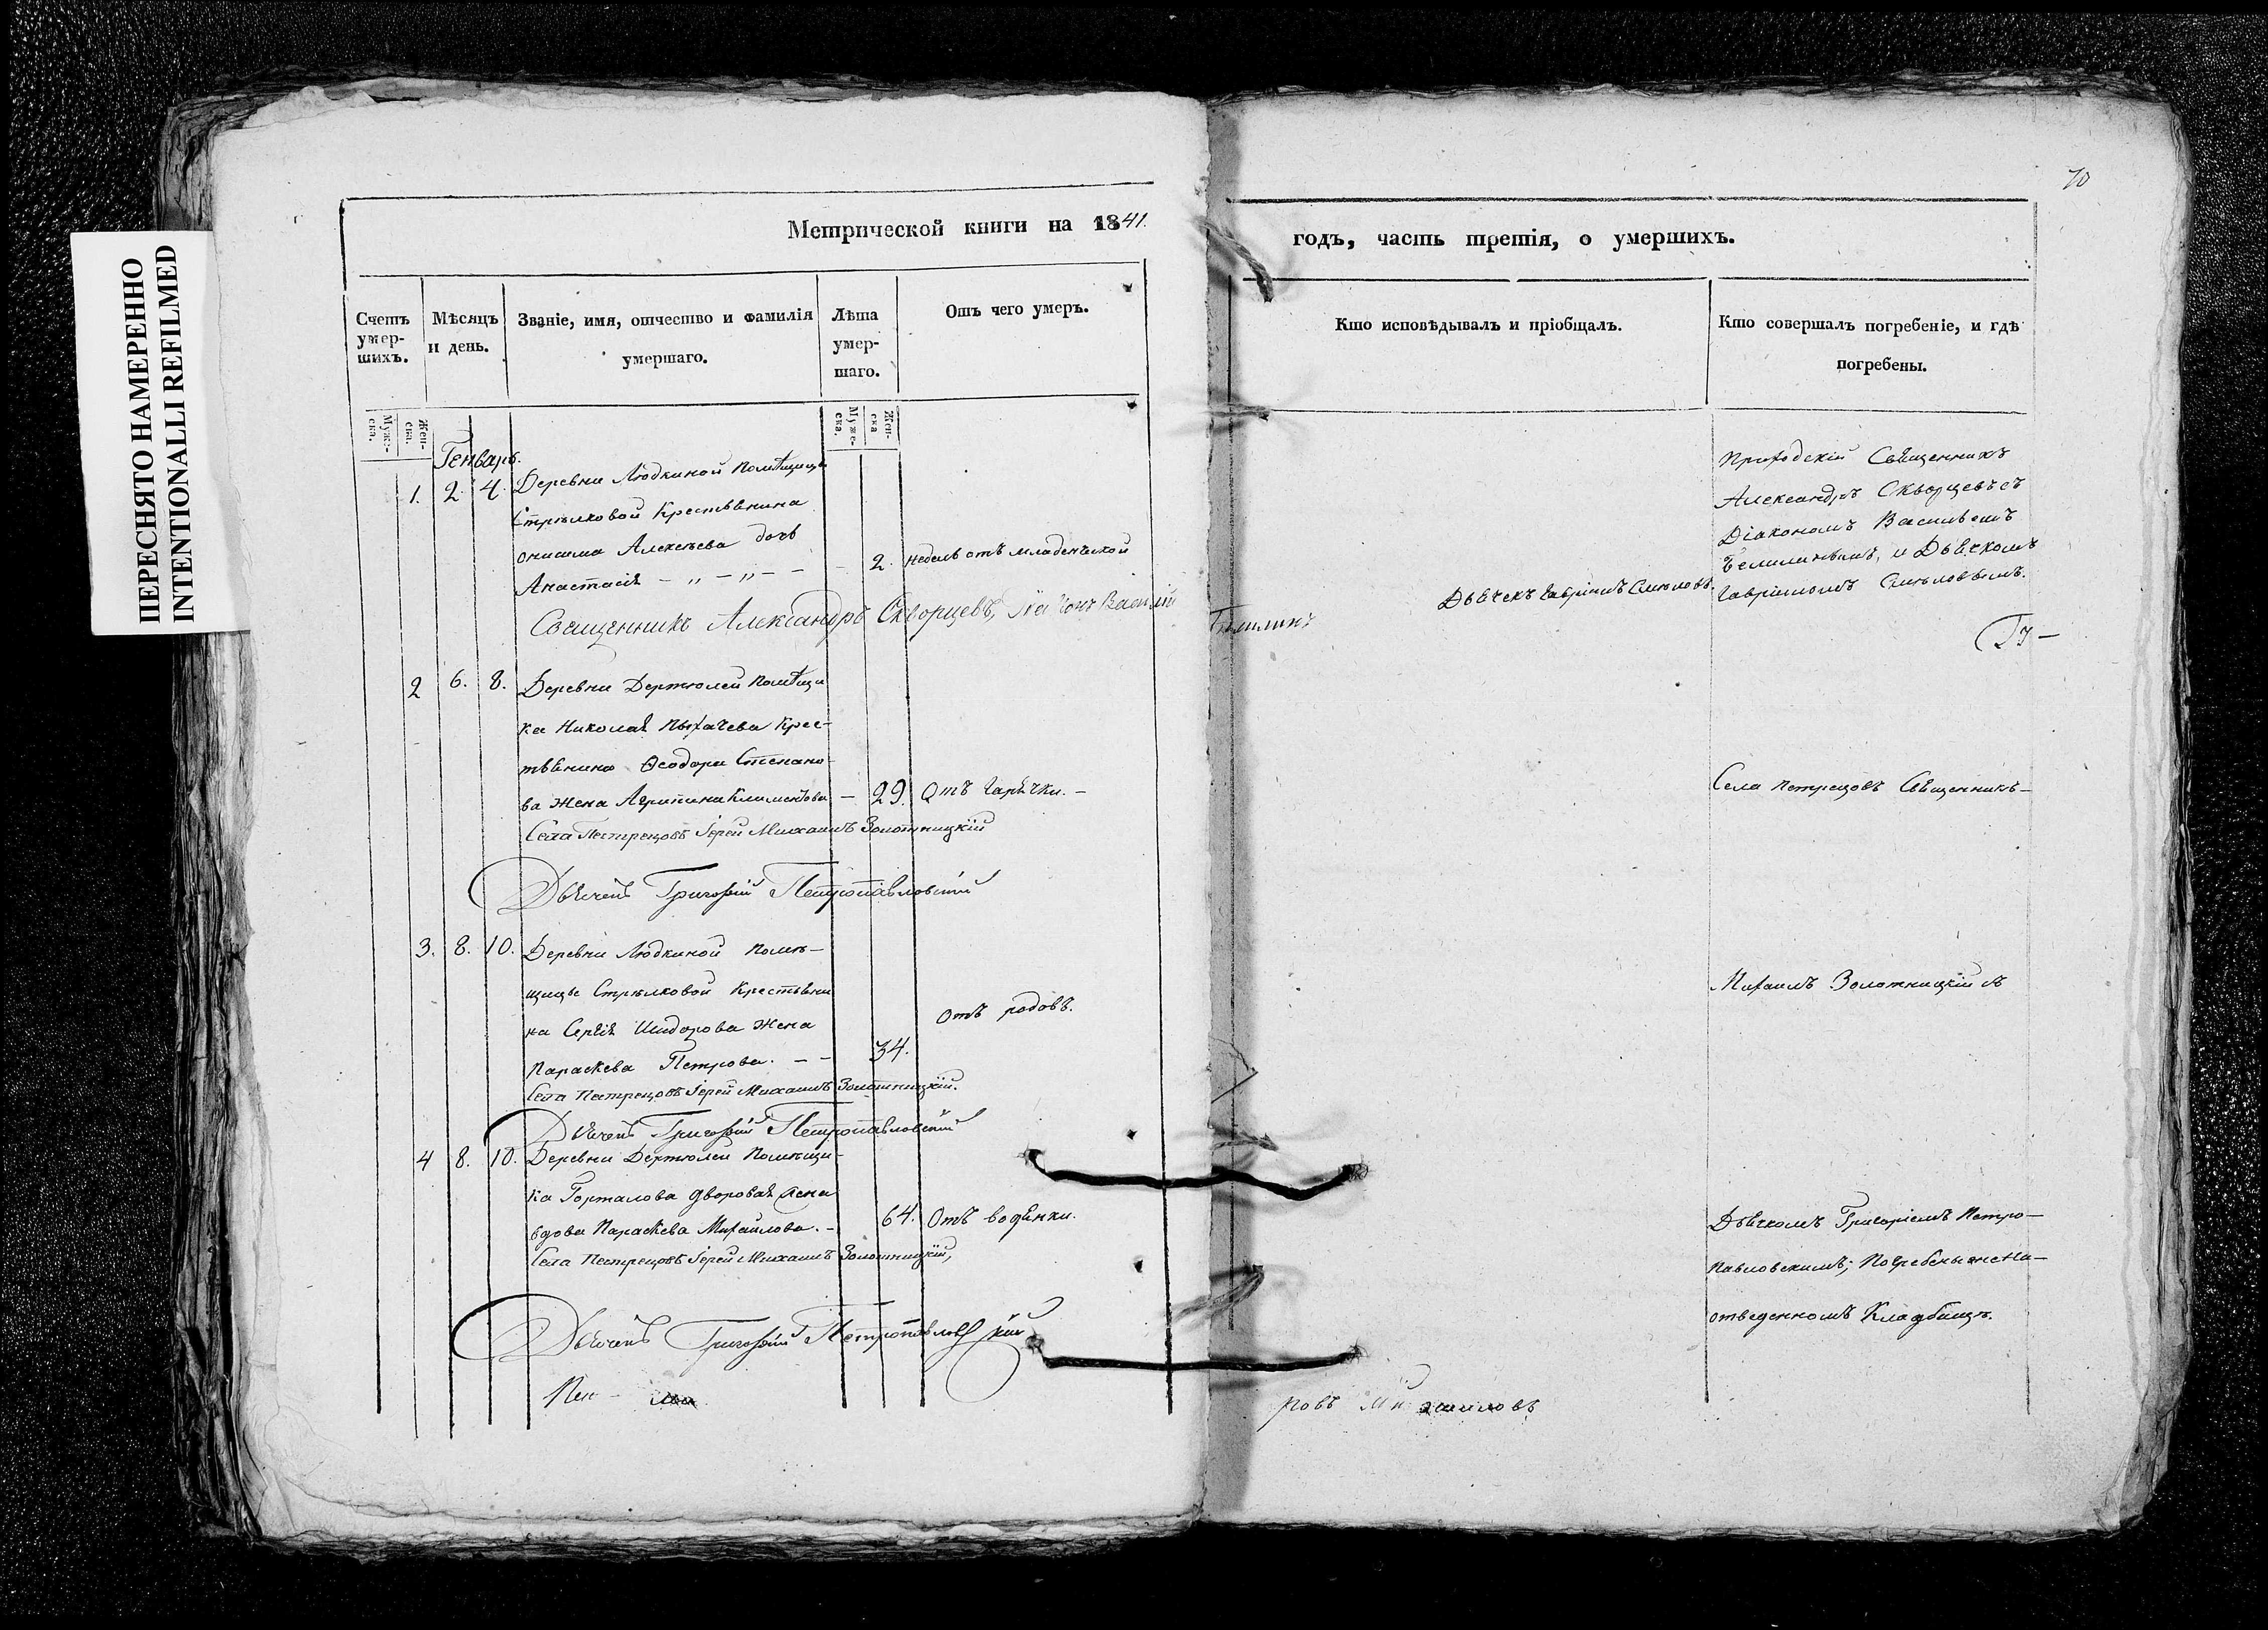 ПЕРЕСНЯТО НАМЕРЕННО
INTENTIONALLI REFILMED
70
Метрической книги на 1841.
годъ, часть третія, о умершихъ.
Счетъ умер-шихъ.
Мѣсяцъ и день.
Званіе, имя, отчество и фамилія умершаго.
Лѣта умер-шаго.
Отъ чего умеръ.
Кто исповѣдывалъ и пріобщалъ.
Кто совершалъ погребеніе, и гдѣ погребены.
Муже-ска.
Жен-ска.
Муже-ска.
Жен-ска
Генварь.
1. 2. 4. Деревни Людкиной помѣщицы
Стрѣлковой Крестьянина
Алексѣева дочь
Анастасія - „ - „ - - - 2. недель отъ младенческой
Священникъ Александръ Скворцевъ, Василій
Дьячекъ Гавріилъ
Приходскій Священникъ
Александръ Скворцевъ съ
Діакономъ Васильемъ
и Дьячкомъ
Гавріиломъ
2 6. 8. Деревни Дертюлей помѣщи
ка Николая Пыхачева Крес-
тьянина Ѳеодора Степано
ва жена Агрипина Климентова - 29. Отъ Горячки. -
Села Пестрецовъ Іерей Михаилъ Золотницкій
Дьячекъ Григорій Петропавловскій
Села Пестрецовъ Священникъ-
3. 8. 10. Деревни Людкиной помѣ-
щицы Стрѣлковой Крестьяни
на Сергія Исидорова жена
Параскева Петрова. - - 34. Отъ родовъ.
Села Пестрецовъ Іерей Михаилъ Золотницкій.
Дьячекъ Григорій Петропавловскій
Михаилъ Золотницкій съ
4 8. 10. Деревни Дертюлей помѣщи-
ка Горталова дворовая
вдова Параскева Михайлова. - 64. Отъ водянки.
Села Пестрецовъ Іерей Михаилъ Золотницкій,
Дьячекъ Григорій Петропавловскій
Дьячкомъ Григоріемъ Петро-
павловскимъ; погребены же на-
отведенномъ Кладбищѣ.